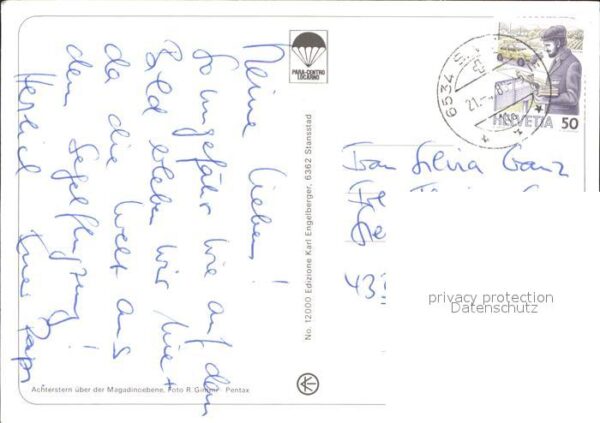 Meine Lieben!
So ungefähr wie auf dem
Bild erleben wir hier
da die Welt aus
dem Segelflugzeug!
Herzlich Euer Papi
PARA-CENTRO
LOCARNO
No. 12000 Edizione Karl Engelberger, 6362 Stansstad
Achterstern über der Magadinoebene, Foto R. Pentax
6534 S
21.
HELVETIA 50
Silvia Ganz
43
privacy protection
Datenschutz